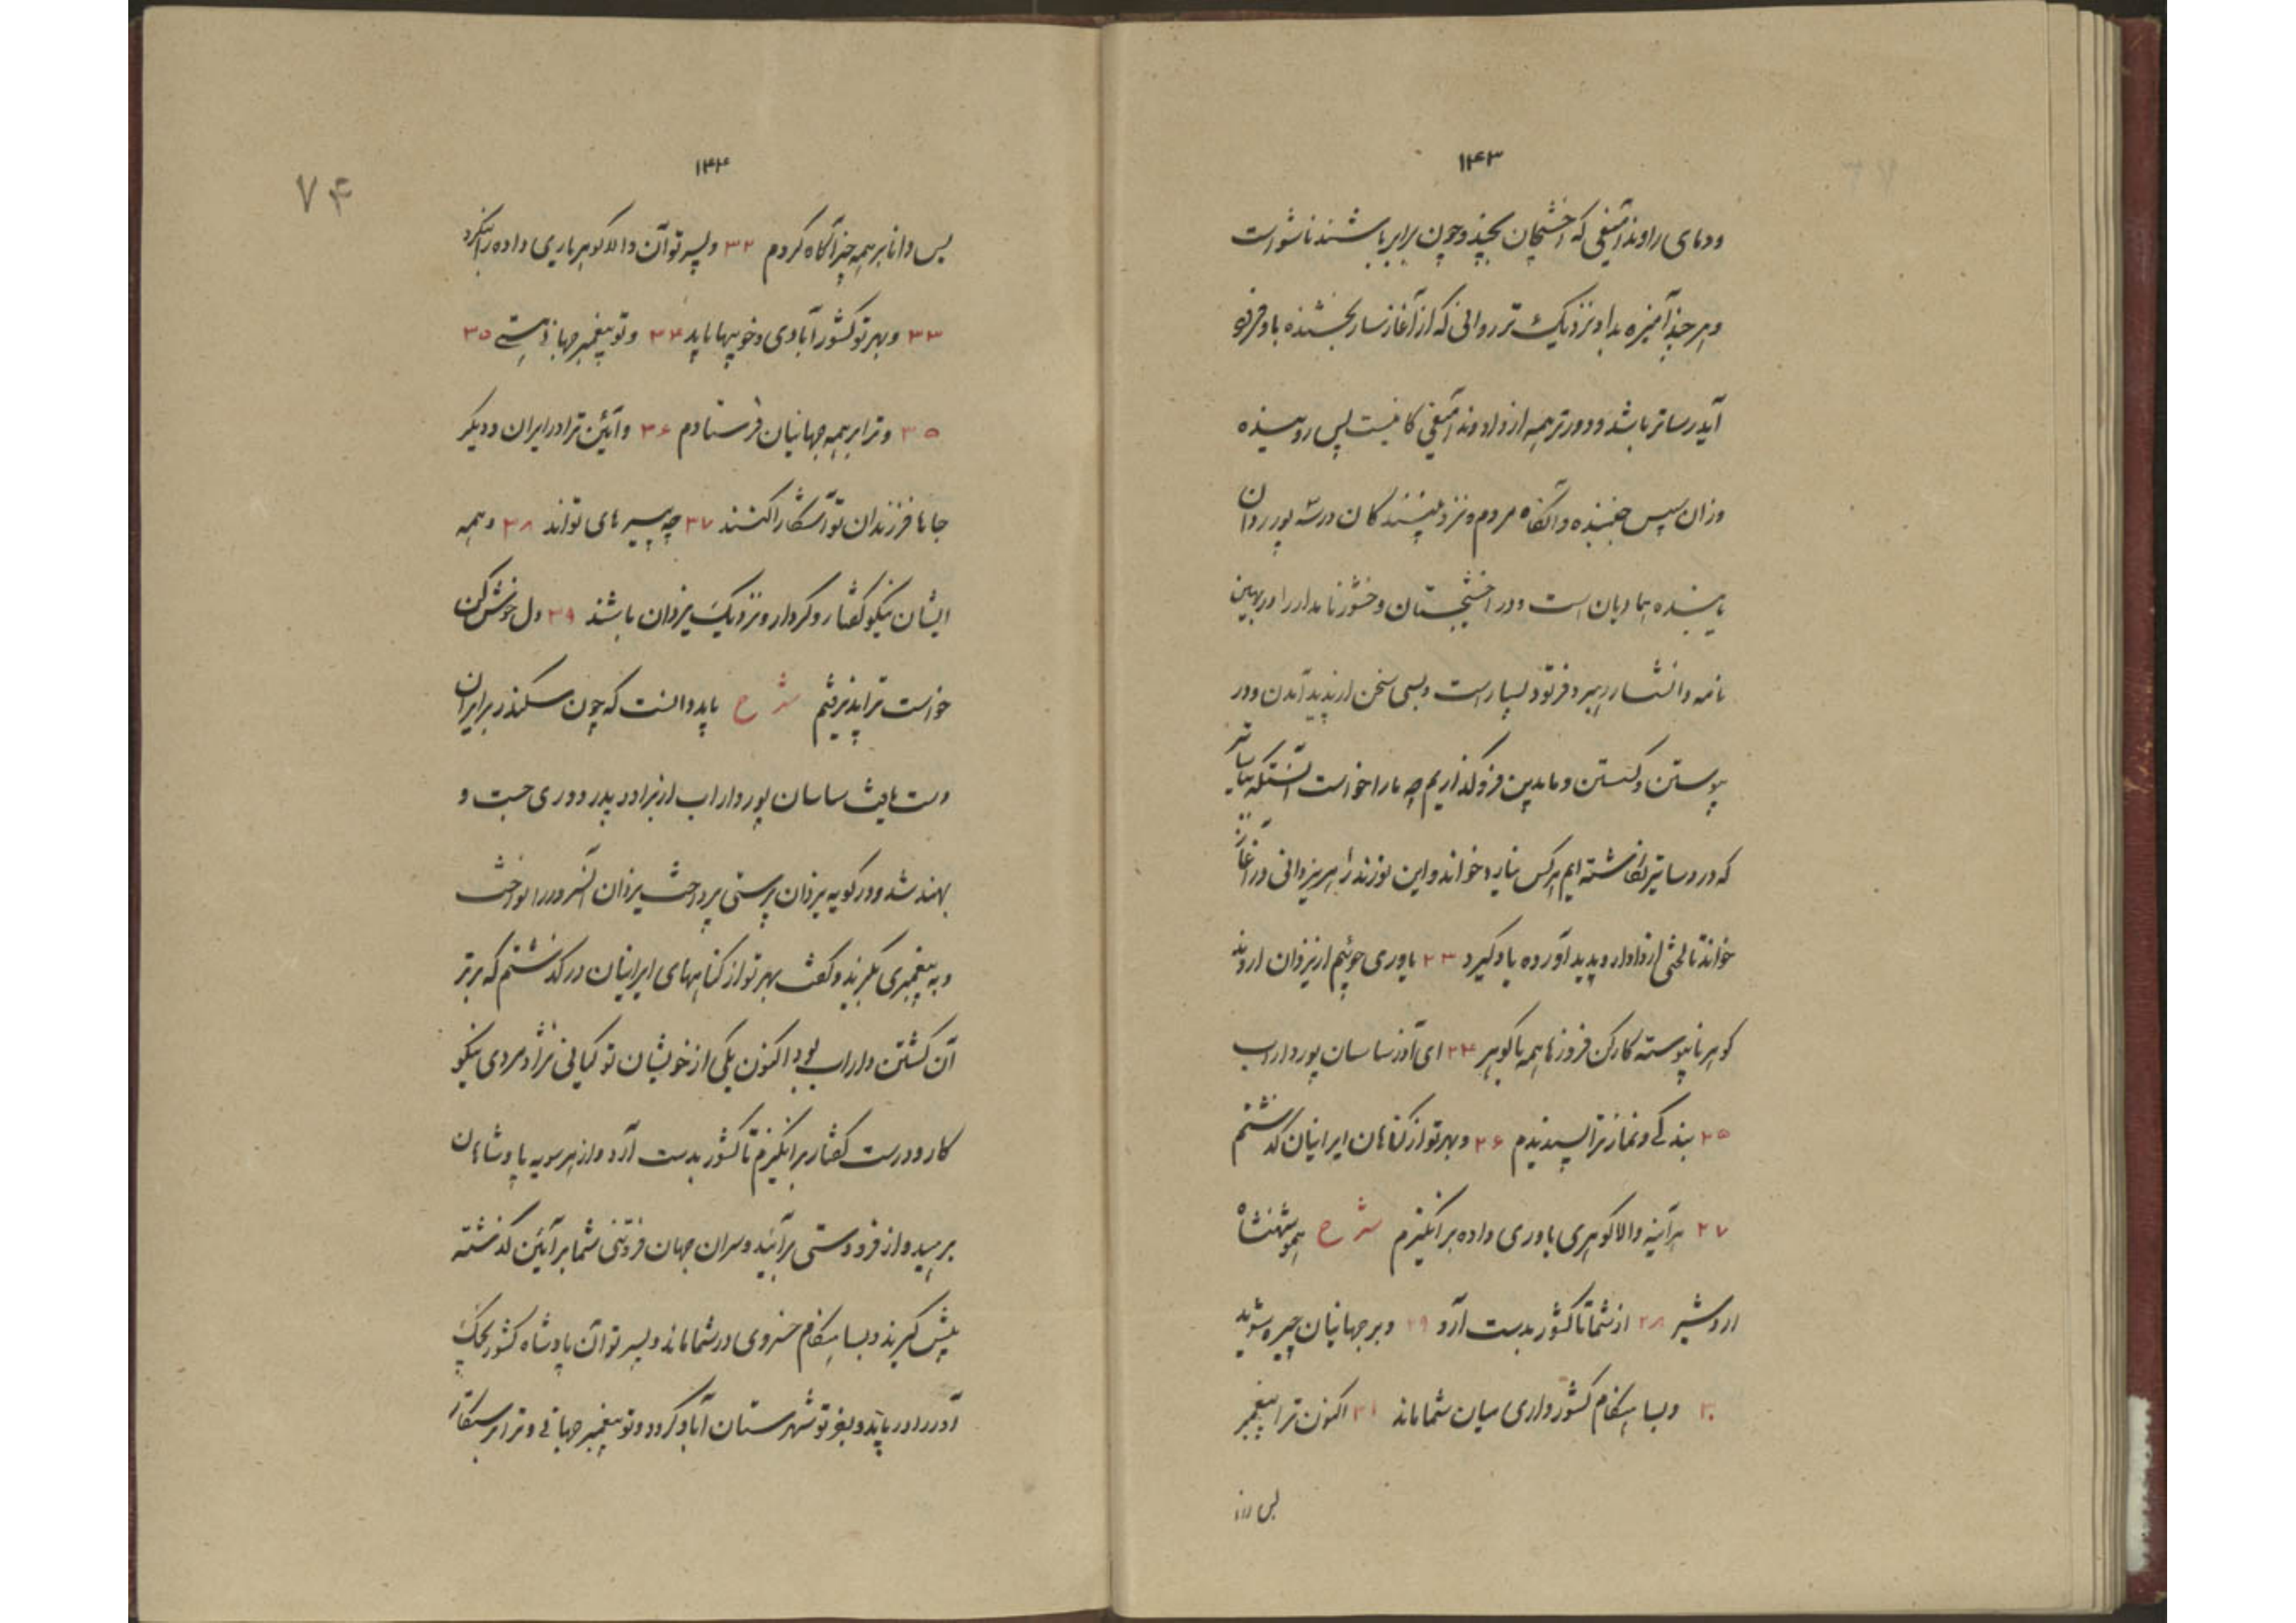 ۱۴۳
ودمای راوند آمیغی که اخشیجان بجنبد و چون برابر باشند ناشو است
و هر چند آمیزه بداد نزدیک تر روانی که از آغاز نسار بخشنده باو فرود
آید رساتر باشد و دورتر همه از داد وند آمیغی کانیست پس روینده
وزان سپس جنبنده و آنگاه مردم و نزد بینندگان در شه پور روان
یابنده هما دیان است و در اخشیجستان وخشور نامدار را در بهین
نامه دانشار رهبر و فرتود بسیار است و بسی سخن از پدید آمدن و در
پیوستن و گسستن و ما بدین فرو گذاریم چه ما را خواست آنستکه بیاتیر
که در دساتیر نگاشته ایم هر کس نیارد خواند و این نوزند را هر یزدانی در آغاز
خواند تا لختی از دادار و پدید آورده یاد گیرد ۲۳ یاوری جوئیم از یزدان اروند
گوهر ناپیوسته کارکن فروزها همه با گوهر ۲۴ ای آذر ساسان پور داراب
۲۵ بندگی و نماز ترا پسندیدم ۲۶ و بهر تو از گناهان ایرانیان گذشتم
۲۷ هر آینه والا گوهری یاوری داده بر انگیزم شرح همو شهنشاه
اردشیر ۲۸ از شما تا کشور بدست آرد ۲۹ و بر جهانیان چیره شوید
۳۰ و بسا هنگام کشورداری میان شما ماند ۳۱ اکنون ترا پیغمبر
پس دانا
۱۴۴
۷۴
پس دانا بر همه چیز آگاه کردم ۳۲ و پسر تو آن والا گوهر یاری داده را بنگرد
۳۳ و بهر تو کشور آبادی و خوبیها یابد ۳۴ و تو پیغمبر جهانی هستی ۳۵
۳۵ و ترا بر همه جهانیان فرستادم ۳۶ و آئین ترا در ایران و دیگر
جاها فرزندان تو آشکارا کنند ۳۷ چه پسرهای تواند ۳۸ و همه
ایشان نیکو گفتار و کردار و نزدیک یزدان باشند ۳۹ دل خوش کن
خواست ترا پذیرفتم شرح باید دانست که چون سکندر بر ایران
دست یافت ساسان پور داراب از برادر پدر دوری جست و
بهند شد و در کوبه یزدان پرستی پرداخت یزدان آنسرور را نواخت
و به پیغمبری بگزید و گفت بهر تو از گناههای ایرانیان در گذشتم که برتر
آن کشتن داراب بود اکنون یکی از خویشان تو کیانی نژاد مردی نیکو
کار و درست گفتار بر انگیزم تا کشور بدست آرد و از هر سویه پادشاهان
برهید و از فرودستی برآئید و سران جهان فروتنی شما بر آئین گذشته
پیش گیرند و بسا هنگام خسروی در شما ماند و پسر تو آن پادشاه کشور بچنگ
آور را دریابد و بفر تو شهرستان آباد گردد و تو پیغمبر جهانی و ترا برستگار